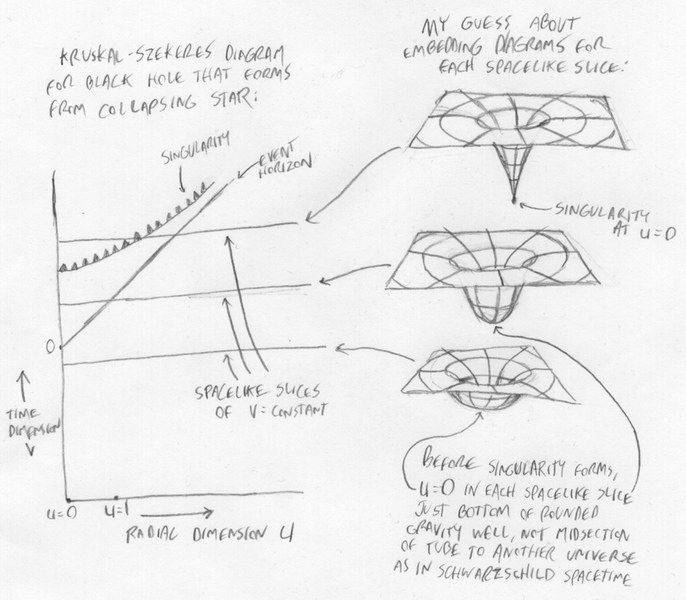 KRUSKAL-SZEKERES DIAGRAM
FOR BLACK HOLE THAT FORMS
FROM COLLAPSING STAR:
MY GUESS ABOUT
EMBEDDING DIAGRAMS FOR
EACH SPACELIKE SLICE:
SINGULARITY
EVENT
HORIZON
SINGULARITY
AT U=0
0
SPACELIKE SLICES
OF V=CONSTANT
TIME
DIMENSION
V
U=0
U=1
RADIAL DIMENSION U
BEFORE SINGULARITY FORMS,
U=0 IN EACH SPACELIKE SLICE
JUST BOTTOM OF ROUNDED
GRAVITY WELL, NOT MIDSECTION
OF TUBE TO ANOTHER UNIVERSE
AS IN SCHWARZSCHILD SPACETIME